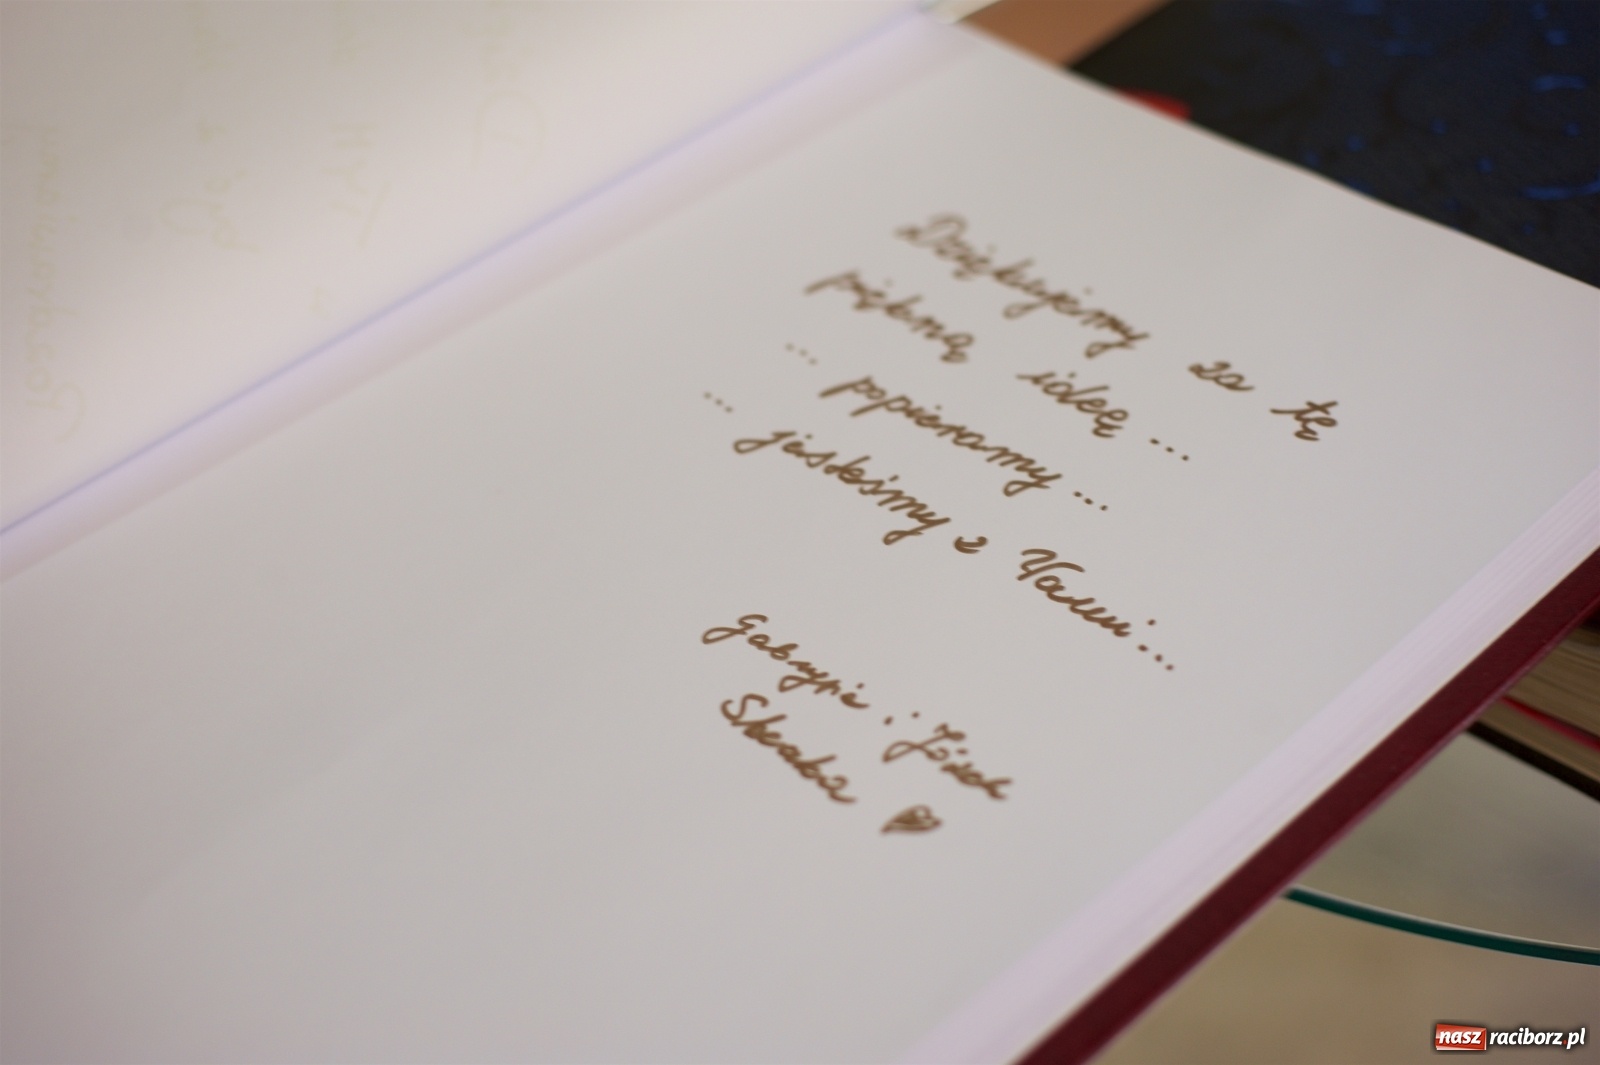 Dziękujemy za tę
piękną ideę ...
... popieramy ...
... jesteśmy z Wami ...
Gabrysia i Józek
Skraba
nasz raciborz.pl